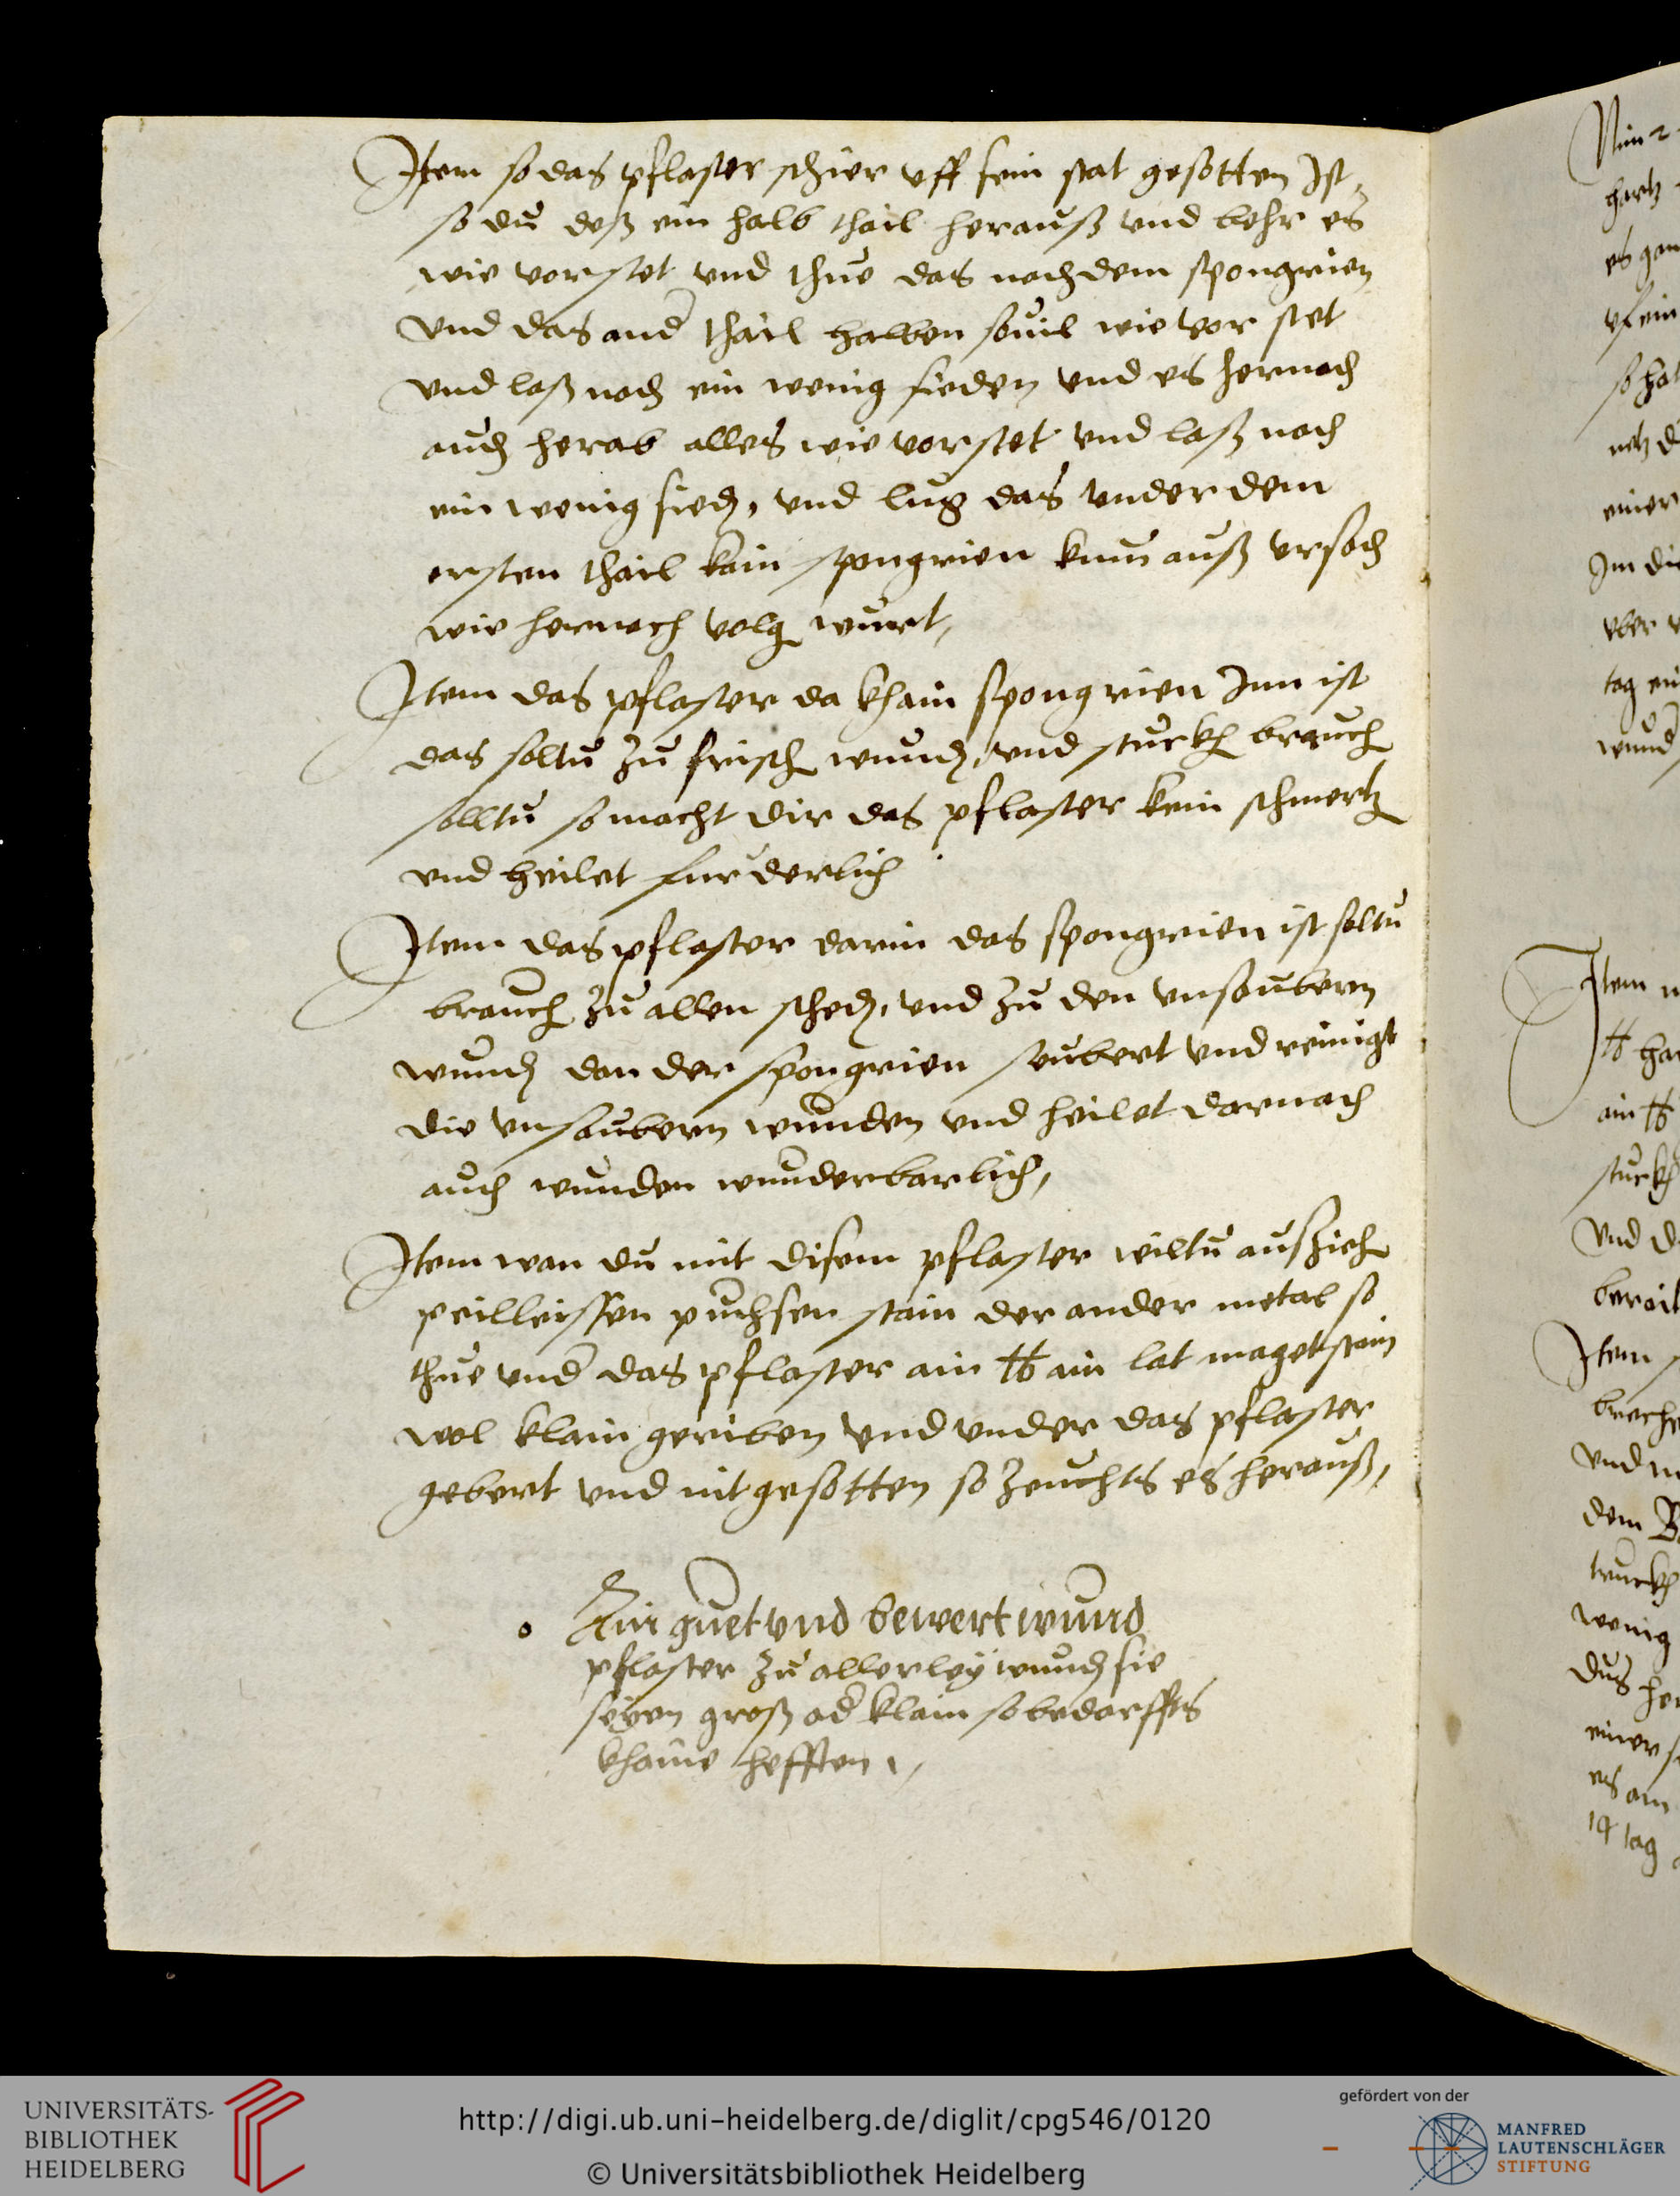 Item so das pflaster schier vff sein stat gesotten Ist,
so du deß ein halb thail herauß vnd behr es
wie vor stet vnd thue das noch dem spongrien
vnd das and thail halben souil wie vor stet
vnd laß noch ein wenig sieden vnd es hernach
auch herab alles wie vor stet vnd laß noch
ein wenig sieden, vnd lug das vnder dem
ersten thail kain spongrien kum auß vrsach
wie hernoch volg wurt,
Item das pflaster da khain spongrien Inn ist
das soltu zu frisch wunden, vnd sturkh brauch
solltu so macht dir das pflaster kein schmertz
vnd heilet furderlich
Item das pflaster darin das spongrien ist soltu
brauch zu allen scheden, vnd zu den vnsaubern
wunden dan der spongrien seubert vnd reinigt
die vnsaubern wunden vnd heilet darnach
auch wunden wunderbarlich,
Item wan du mit disem pflaster wiltu ausziehen
peilleissen puchsen stain der ander metal so
thue vnd das pflaster ain ℔ ain lat magetstain
wol klain geriben vnd vnder das pflaster
gebert vnd nit gesotten so zeuchts es herauß,
Ain guet vnd bewert wund
pflaster zu allerley wunden sie
seyen groß od klain so bedarffts
khains hefften,
Nim
hartz
es gan
vf ein
so hat
netz
einer
Im die
vber
tag ein
wund
Item
℔ har
ain ℔
sturkh
Vnd
berait
Item
breche
Vnd
dem
trurkh
wenig
dus her
einer
es am
14 tag
UNIVERSITÄTS-
BIBLIOTHEK
HEIDELBERG
http://digi.ub.uni-heidelberg.de/diglit/cpg546/0120
© Universitätsbibliothek Heidelberg
gefördert von der
MANFRED
LAUTENSCHLÄGER
STIFTUNG